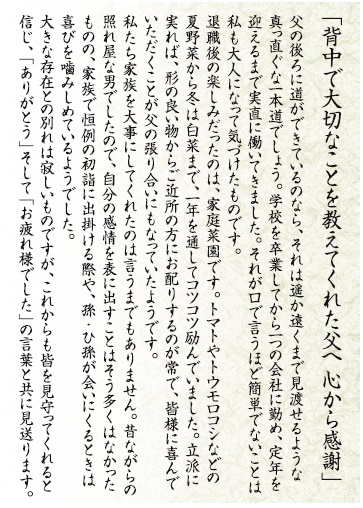 「背中で大切なことを教えてくれた父へ 心から感謝」
父の後ろに道ができているのなら、それは遥か遠くまで見渡せるような
真っ直ぐな一本道でしょう。学校を卒業してから一つの会社に勤め、定年を
迎えるまで実直に働いてきました。それが口で言うほど簡単でないことは
私も大人になって気づけたものです。
退職後の楽しみだったのは、家庭菜園です。トマトやトウモロコシなどの
夏野菜から冬は白菜まで、一年を通してコツコツ励んでいました。立派に
実れば、形の良い物からご近所の方にお配りするのが常で、皆様に喜んで
いただくことが父の張り合いにもなっていたようです。
私たち家族を大事にしてくれたのは言うまでもありません。昔ながらの
照れ屋な男でしたので、自分の感情を表に出すことはそう多くはなかった
ものの、家族で恒例の初詣に出掛ける際や、孫・ひ孫が会いにくるときは
喜びを噛みしめているようでした。
大きな存在との別れは寂しいものですが、これからも皆を見守ってくれると
信じ、「ありがとう」そして「お疲れ様でした」の言葉と共に見送ります。